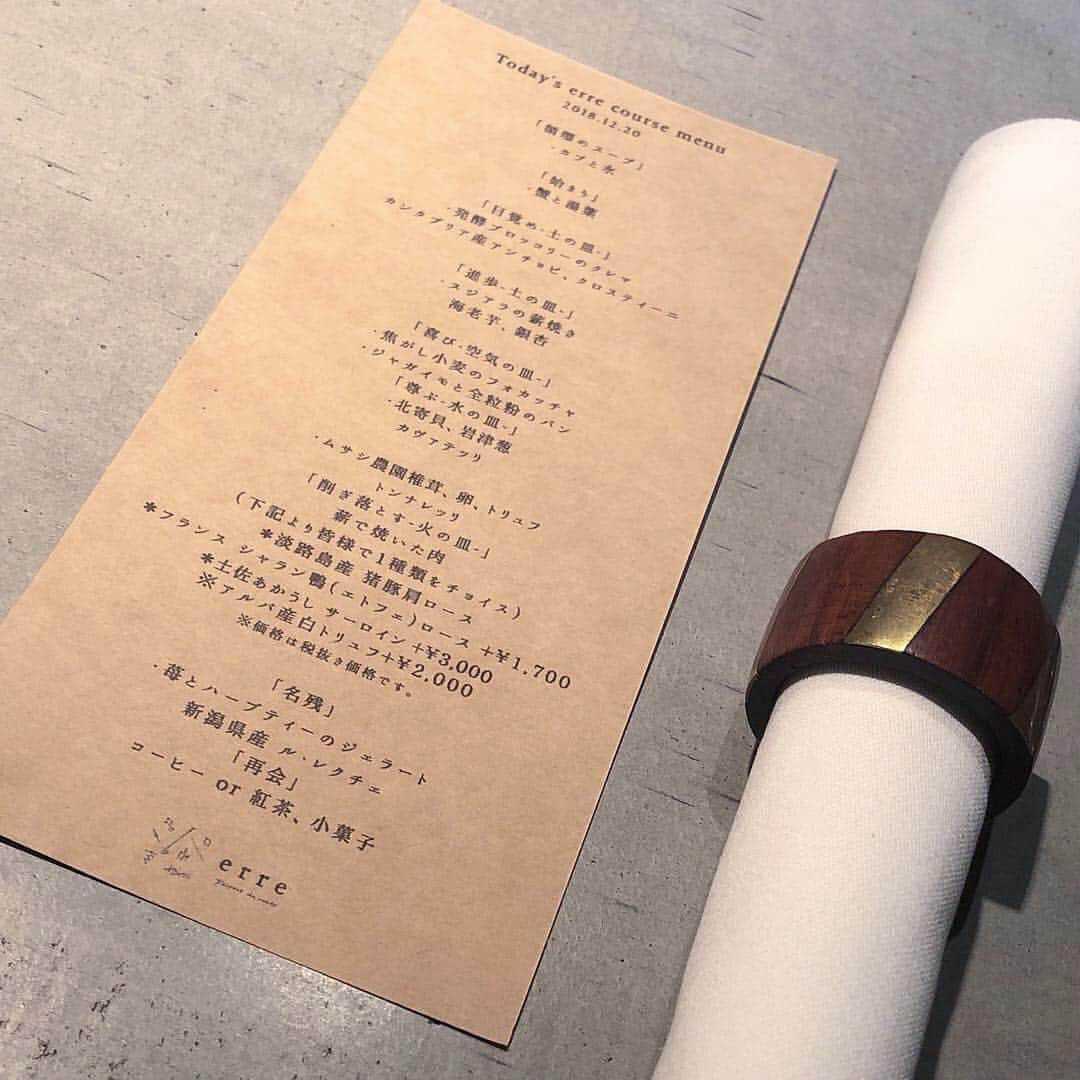 Today's erre course menu
2018.12.20
のスープ」
・カブと水
「始まり」
・蟹と湯葉
「目覚め-土の皿-」
・発酵ブロッコリーのクレマ
カンタブリア産アンチョビ、クロスティーニ
「進歩-土の皿-」
・スジアラの薪焼き
海老芋、銀杏
「喜び-空気の皿-」
・焦がし小麦のフォカッチャ
・ジャガイモと全粒粉のパン
「尊ぶ-水の皿-」
・北寄貝、岩津葱
カヴァテッリ
・ムサシ農園椎茸、卵、トリュフ
トンナレッリ
「削ぎ落とす-火の皿-」
薪で焼いた肉
(下記より皆様で1種類をチョイス)
*淡路島産 猪豚肩ロース
*フランス シャラン鴨(エトフェ)ロース +¥1.700
*土佐あかうし サーロイン +¥3,000
※アルバ産白トリュフ+¥2.000
※価格は税抜き価格です。
「名残」
・苺とハーブティーのジェラート
新潟県産 ル・レクチェ
「再会」
コーヒー or 紅茶、小菓子
erre